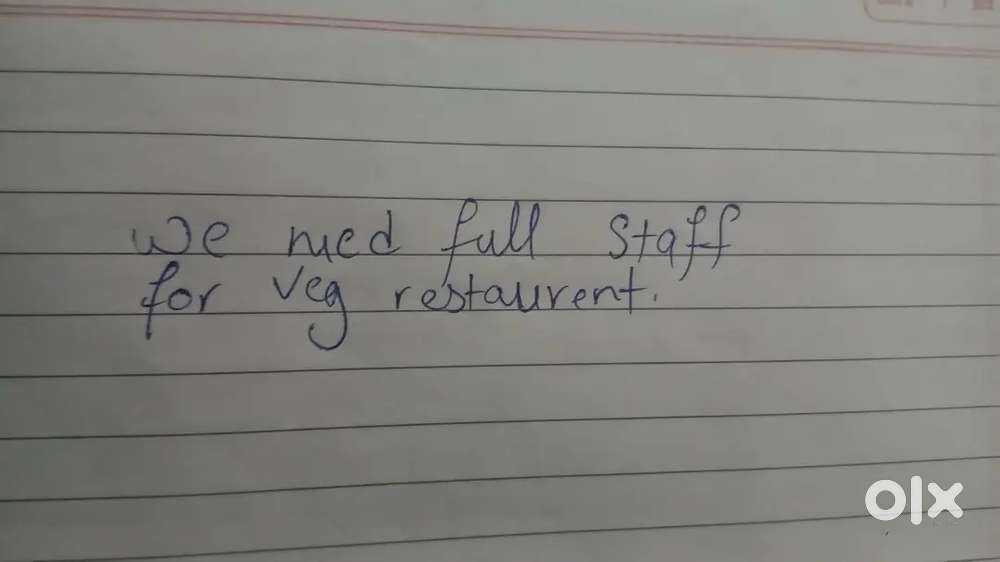 We need full staff
for veg restaurent.
olx